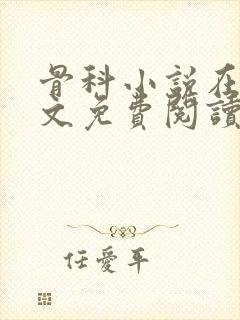 骨科小説在
文免費閱讀
任愛平